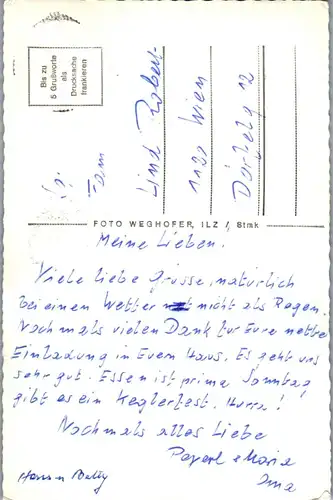 Bis zu
5 Grußworte
als
Drucksache
frankieren
Fam
Lind Robert
1120 Wien
FOTO WEGHOFER, ILZ / Stmk
Meine Lieben.
Viele liebe Grüsse, natürlich
bei einen Wetter nicht als Regen.
Nochmals vielen Dank für Eure nette
Einladung in Euem Haus. Es geht uns
sehr gut. Essen ist prima Sonntag
gibt es ein Keglerfest. Hurra!
Nochmals alles Liebe
Maria
Oma
Betty